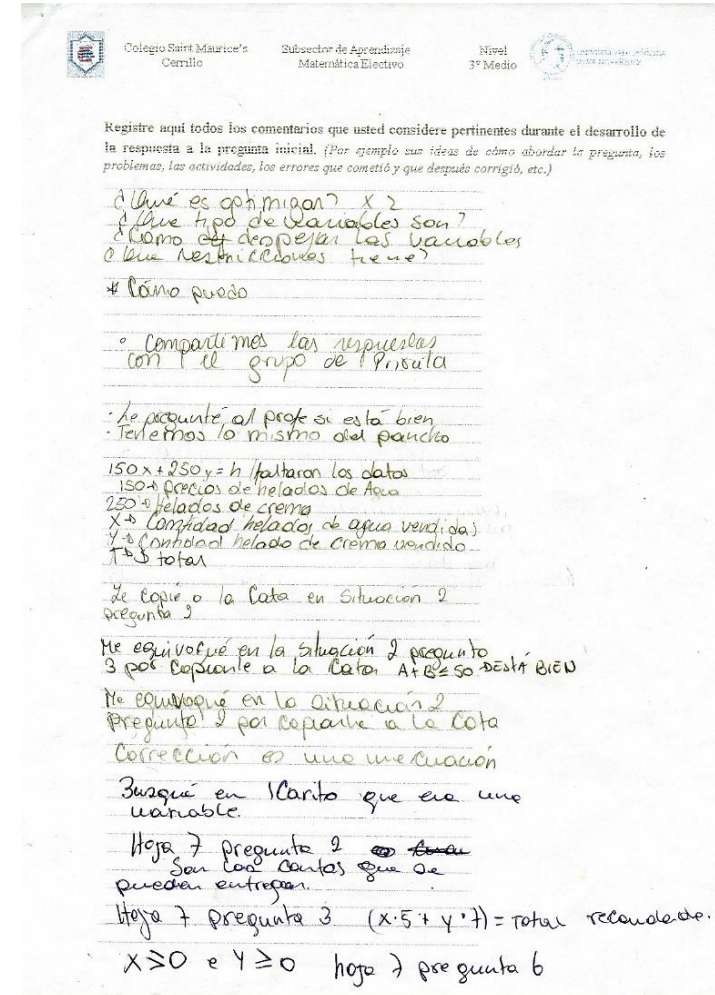 Colegio Saint Maurice's
Cerrillo
Subsector de Aprendizaje
Matemática Electivo
Nivel
3° Medio
Registre aquí todos los comentarios que usted considere pertinentes durante el desarrollo de
la respuesta a la pregunta inicial. (Por ejemplo sus ideas de cómo abordar la pregunta, los
problemas, las actividades, los errores que cometió y que después corrigió, etc.)
¿Qué es optimizar? X 2
¿Que tipo de variables son?
¿Como despejar las variables
Que restricciones tiene?
* Cómo puedo
° Compartimos las respuestas
con el grupo de Priscila
· Le pregunté al profe si está bien
· Tenemos lo mismo del pancho
150x + 250y = h faltaron los datos
150 → precios de helados de Agua
250 → Helados de crema
X → Cantidad helados de agua vendidas
Y → Cantidad helado de crema vendido
T → $ total
Le copié a la Cata en Situación 2
pregunta 2
Me equivoqué en la situación 2 pregunta
3 por copiarle a la Cata A+B≤50 ESTÁ BIEN
Me equivoqué en la situación 2
Pregunta 2 por copiarle a la Cata
Corrección es una inecuación
Busqué en Icarito que era una
variable.
Hoja 7 pregunta 2
Son las cantas que se
pueden entregar.
Hoja 7 pregunta 3 (x·5 + y·7) = Total recaudado.
X≥0 e Y≥0 hoja 7 pregunta 6